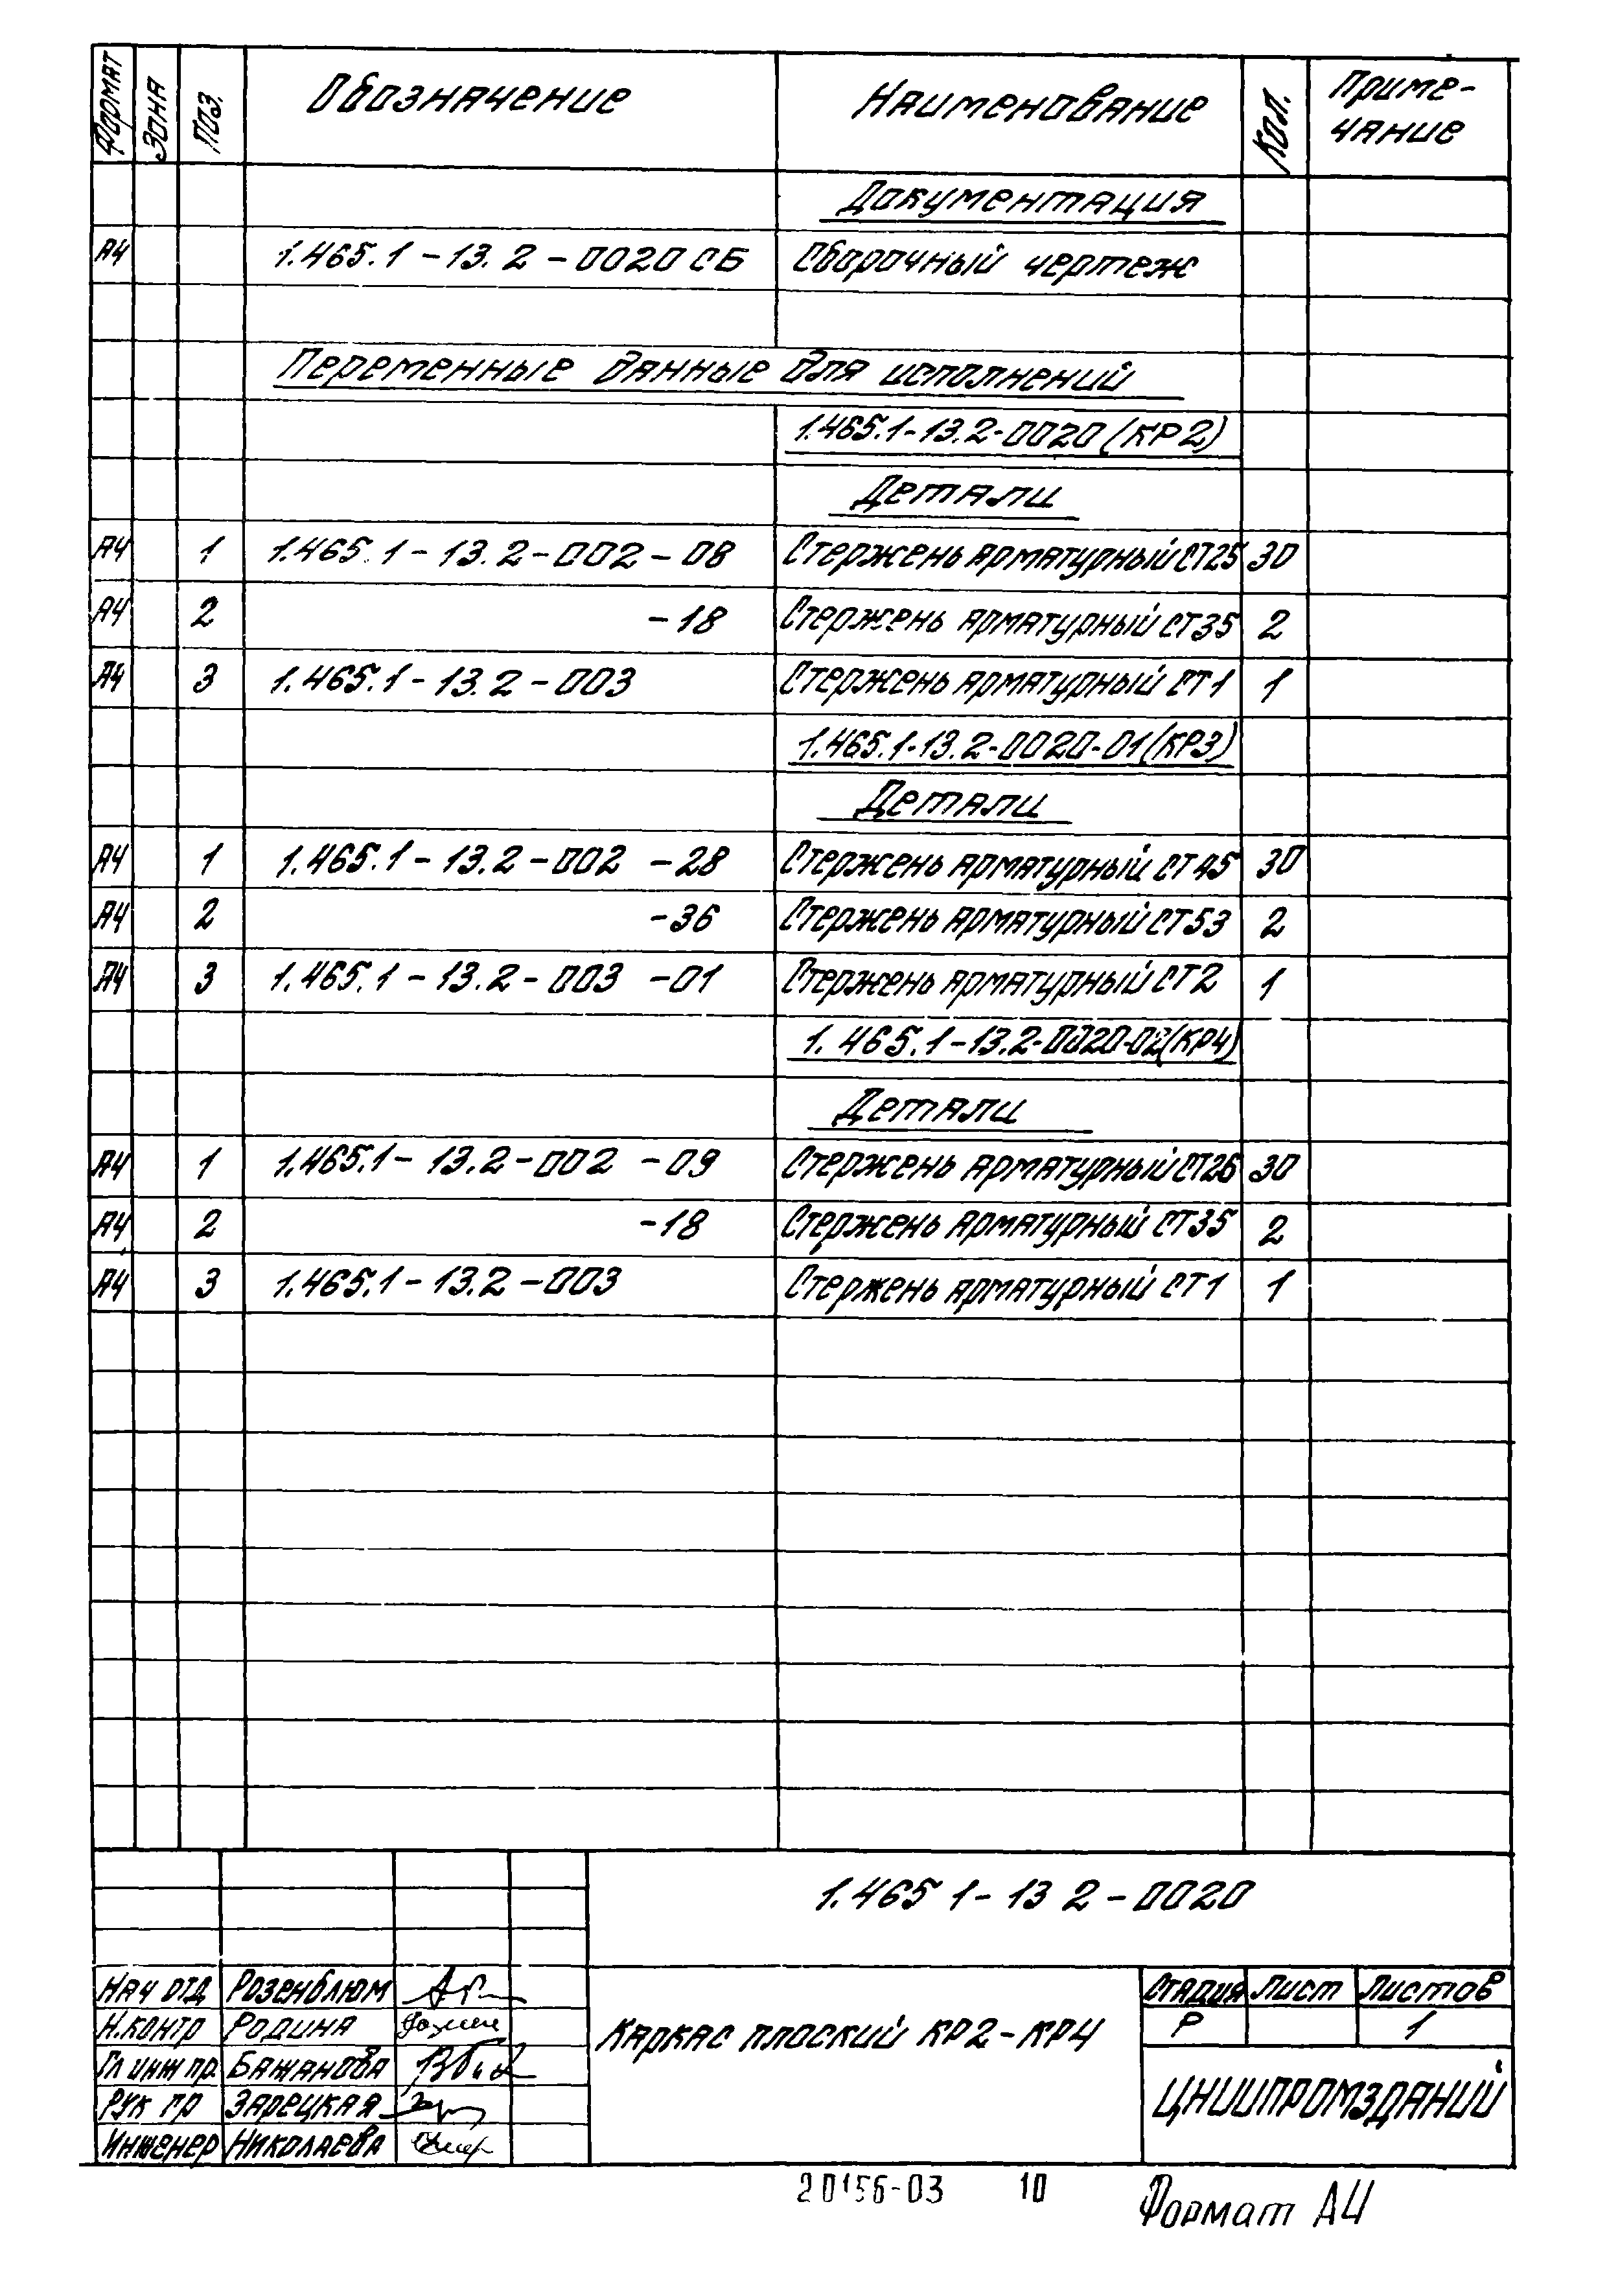 Формат Зона Поз. Обозначение Наименование Кол. Приме-
чание
Документация
А4 1.465.1-13.2-0020 СБ Сборочный чертеж
Переменные данные для исполнений
1.465.1-13.2-0020 (КР2)
Детали
А4 1 1.465.1-13.2-002-08 Стержень арматурный СТ25 30
А4 2 -18 Стержень арматурный СТ35 2
А4 3 1.465.1-13.2-003 Стержень арматурный СТ1 1
1.465.1-13.2-0020-01 (КР3)
Детали
А4 1 1.465.1-13.2-002 -28 Стержень арматурный СТ45 30
А4 2 -36 Стержень арматурный СТ53 2
А4 3 1.465.1-13.2-003 -01 Стержень арматурный СТ2 1
1.465.1-13.2-0020-02 (КР4)
Детали
А4 1 1.465.1-13.2-002 -09 Стержень арматурный СТ26 30
А4 2 -18 Стержень арматурный СТ35 2
А4 3 1.465.1-13.2-003 Стержень арматурный СТ1 1
1.465 1-13 2-0020
Нач отд Розенблюм
Н.контр Родина
Гл инж пр. Бажанова
Рук гр Зарецкая
Инженер Николаева
Каркас плоский КР2-КР4
Стадия Лист Листов
Р 1
ЦНИИПРОМЗДАНИЙ
20156-03 10
Формат А4